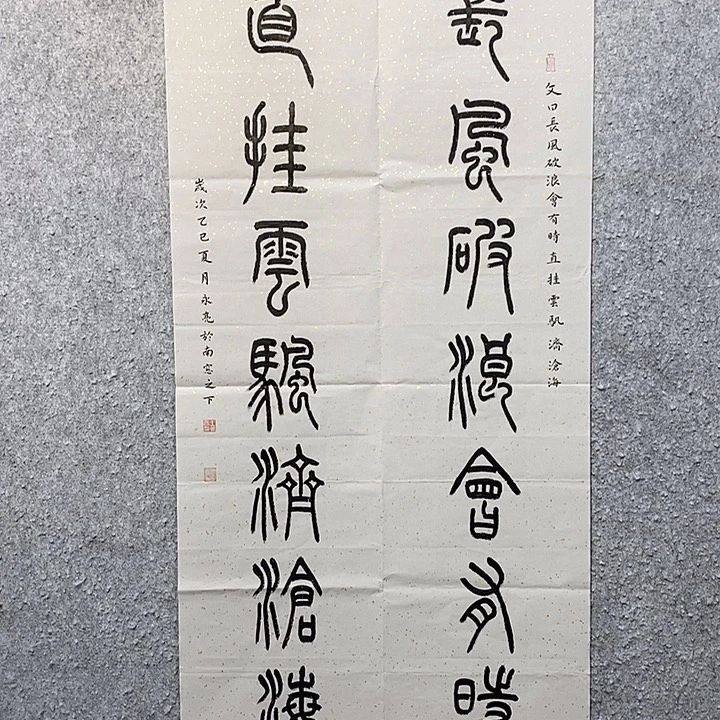 文曰長風破浪會有時直挂雲䭵濟滄海
長風破浪會有時
直挂雲颿濟滄海
歲次乙巳夏月永亮於南窗之下